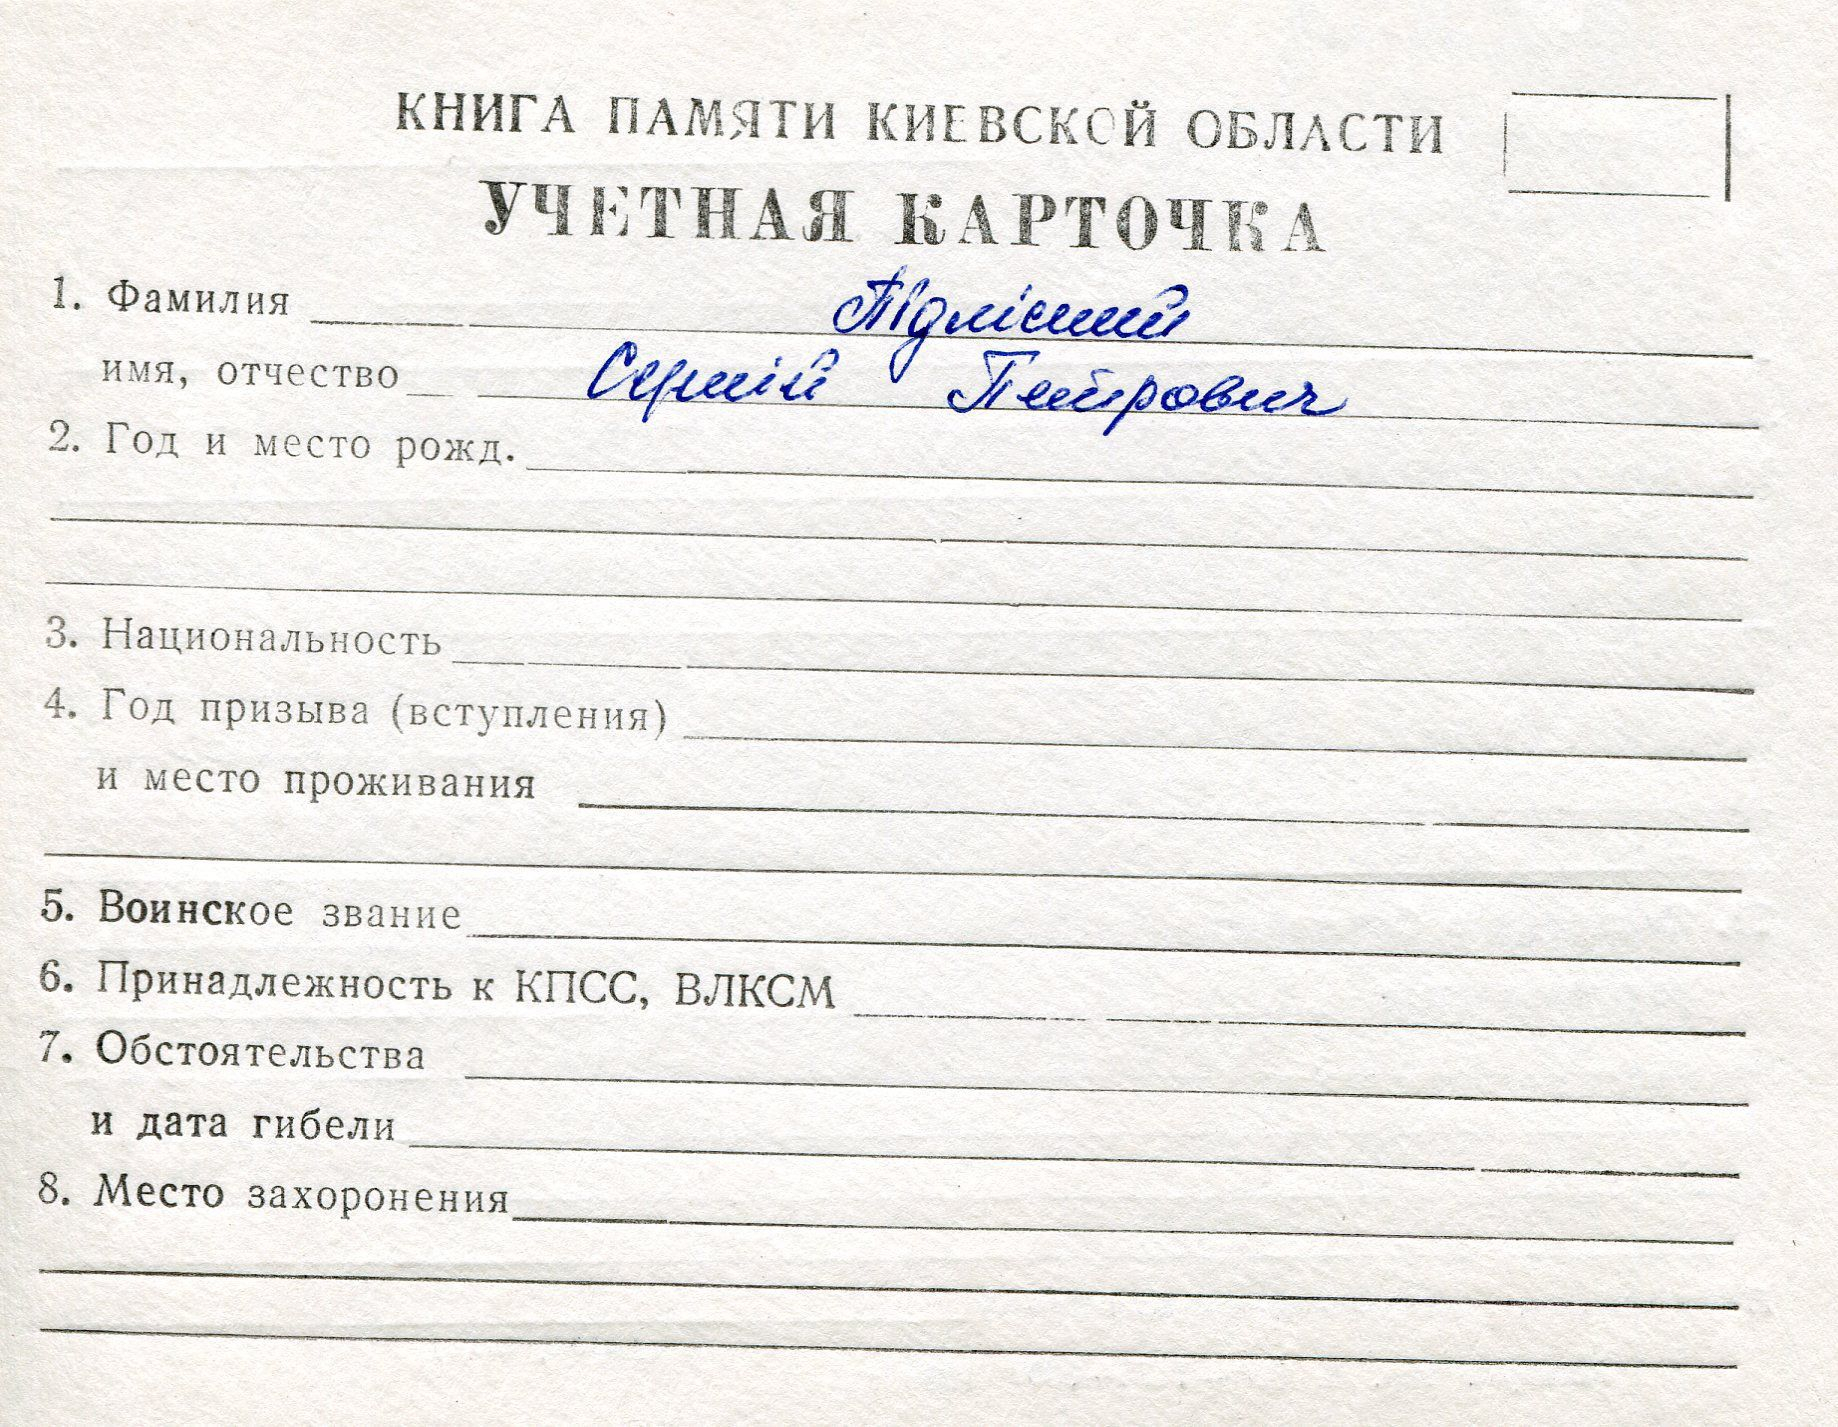 КНИГА ПАМЯТИ КИЕВСКОЙ ОБЛАСТИ
УЧЕТНАЯ КАРТОЧКА
1. Фамилия Підлісний
имя, отчество Сергій Петрович
2. Год и место рожд.
3. Национальность
4. Год призыва (вступления)
и место проживания
5. Воинское звание
6. Принадлежность к КПСС, ВЛКСМ
7. Обстоятельства
и дата гибели
8. Место захоронения